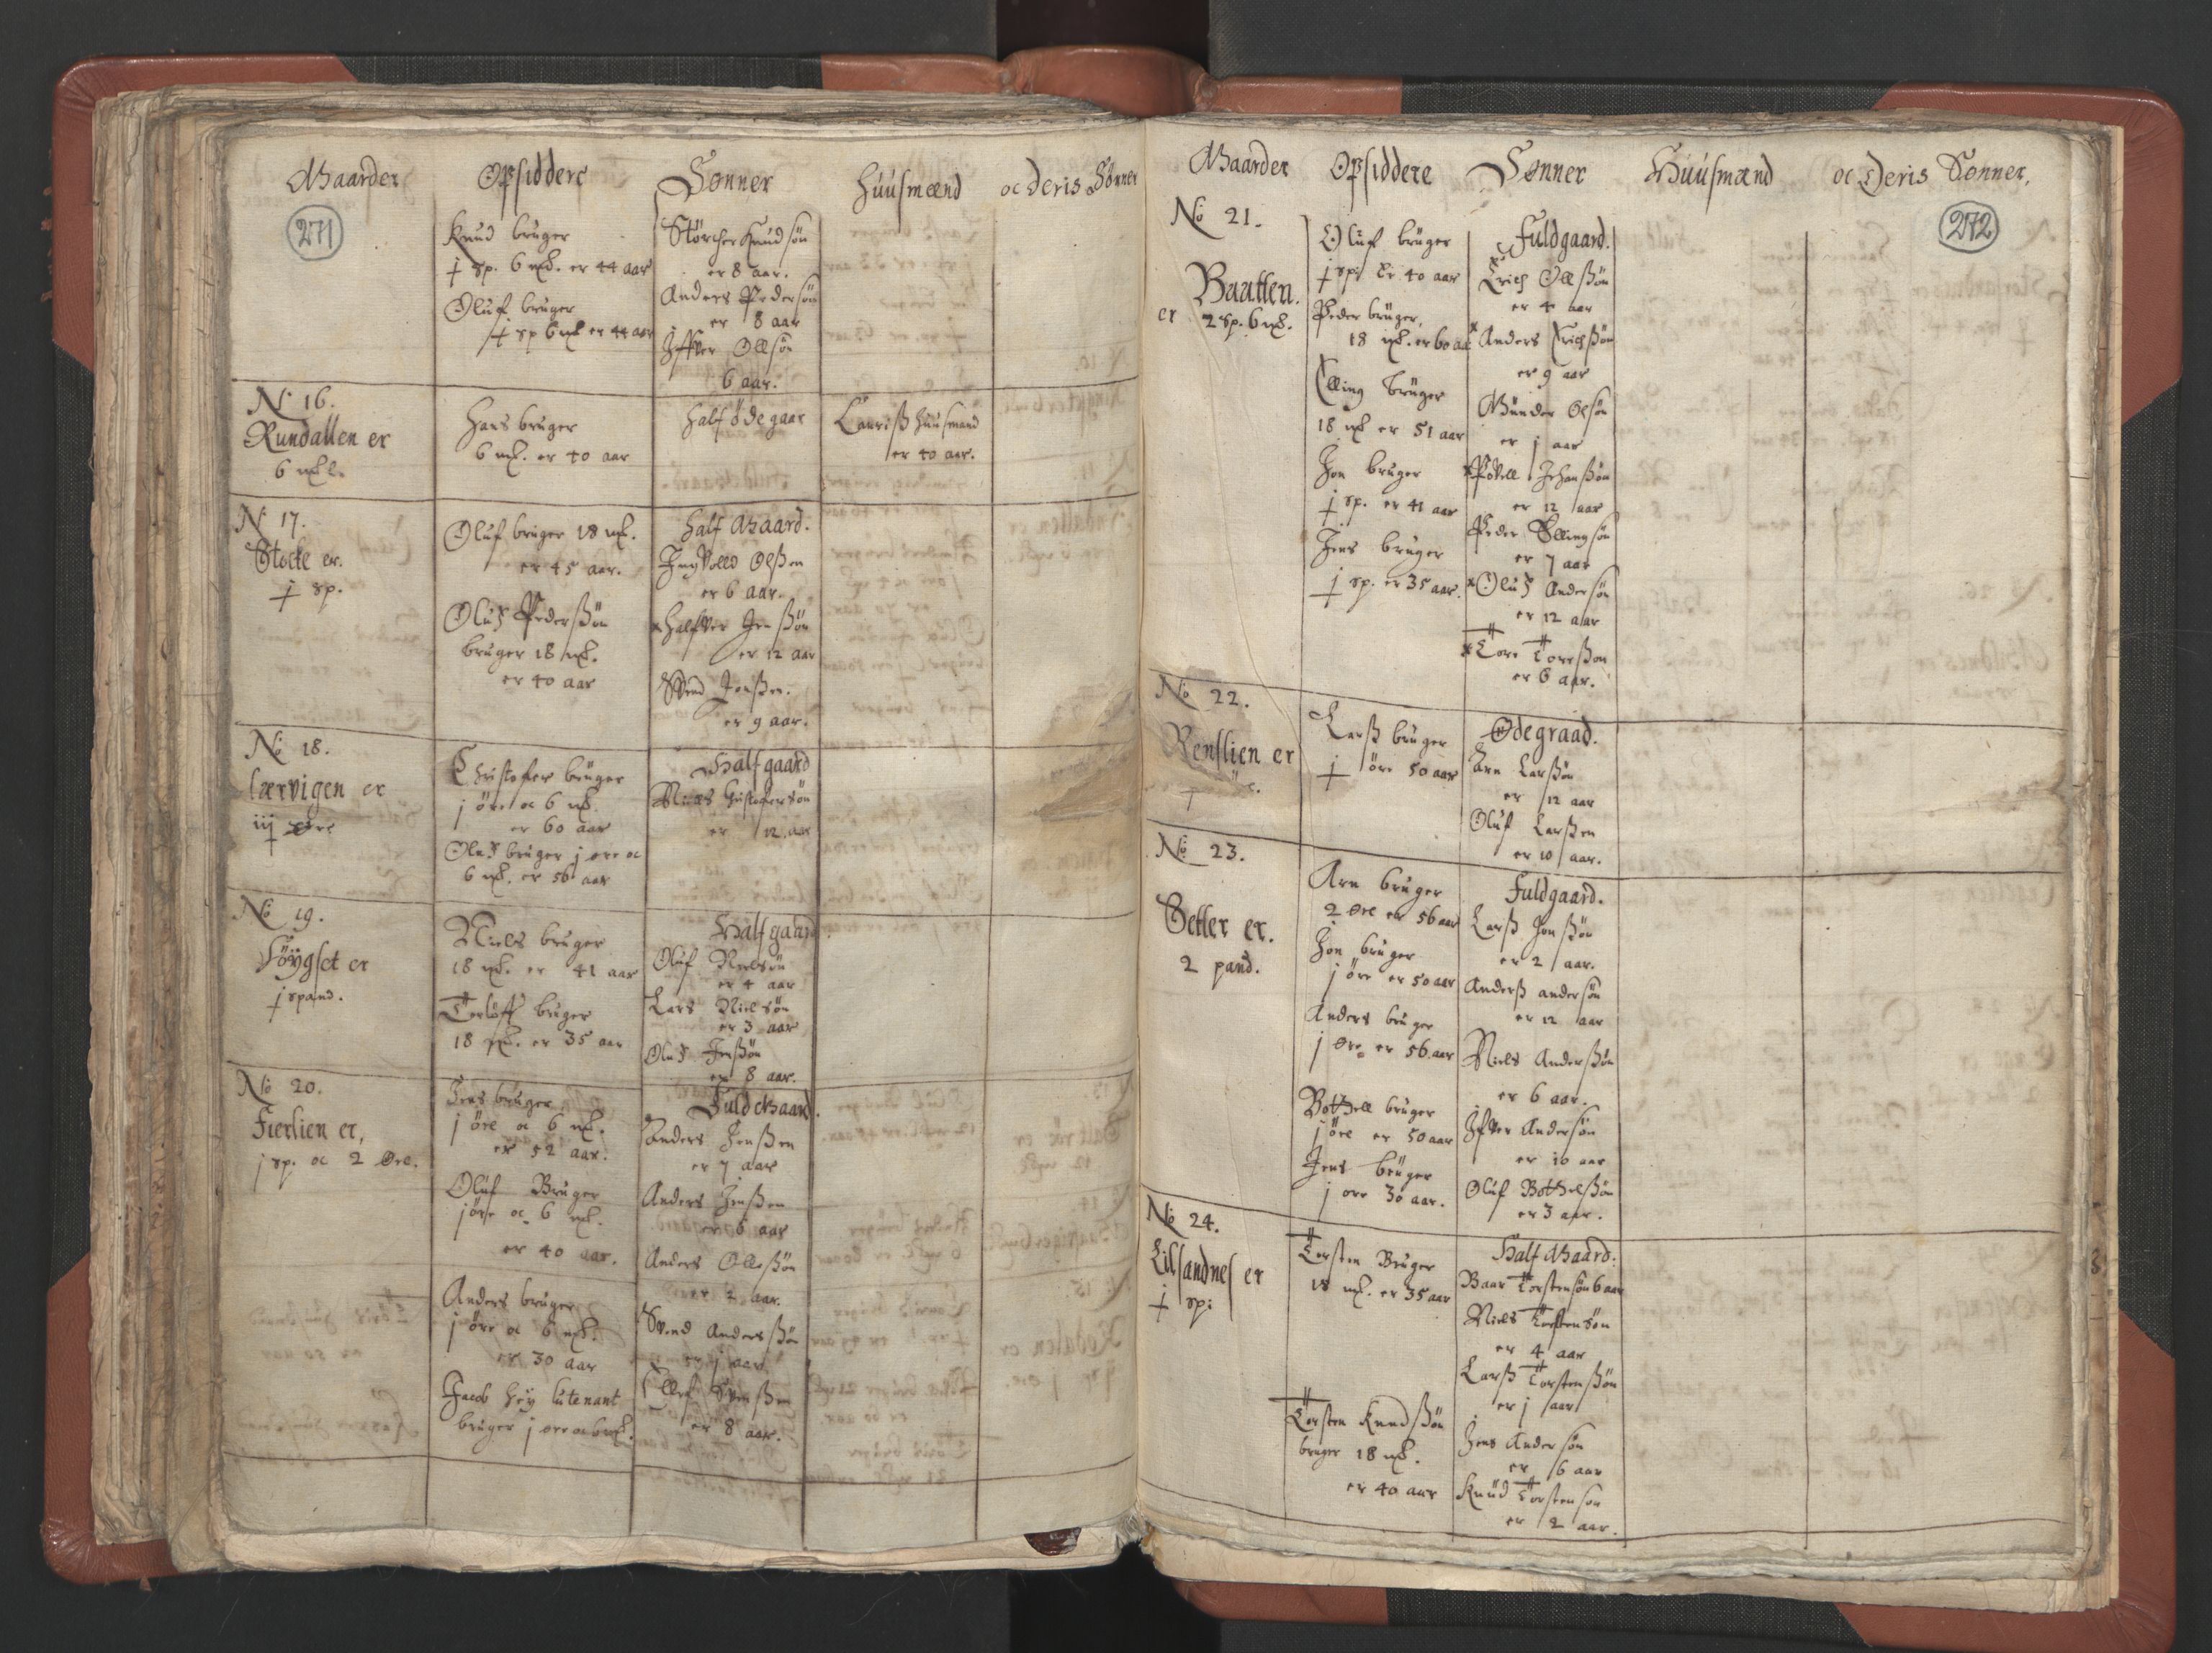 Gaarder Opsiddere Sønner Huusmænd oc Deris Sønner
271
Knud bruger
j sp. 6 mk. er 44 aar
Oluf bruger
j sp 6 mk er 44 aar
Størcher Knudsøn
er 8 aar.
Anders Pedersøn
er 8 aar
Iffver Ollsøn
6 aar.
No 16.
Rundallen er
6 mk l.
Hans bruger
6 mk. er 40 aar
half øde gaar
Lauriß huusmand
er 40 aar.
N 17.
Stocke er.
j sp.
Oluf bruger 18 mk.
er 45 aar.
Oluf Pederßøn
bruger 18 mk.
er 40 aar
half Gaard.
Ingvold Olßen
er 6 aar
Halfver Jenßøn
er 12 aar
Svend Jenßen.
er 9 aar.
No 18.
Lærvigen er
iij øre
Christofer bruger
j øre oc 6 mk.
er 60 aar
Oluf bruger j øre oc
6 mk. er 56 aar
Halfgaard
Niels Christofersøn
er 12 aar
No 19.
Søygset er
j spand.
Niels bruger
18 mk. er 41 aar
Torløff bruger
18 mk. er 35 aar
Halfgaard.
Oluf Nielsøn
er 4 aar
Lars Nielsøn
er 3 aar
Oluf Jenßøn
er 8 aar.
No 20.
Fierlien er,
j sp. oc 2 øre.
Jens bruger
j øre oc 6 mk.
er 52 aar.
Oluf Bruger
j øre oc 6 mk.
er 40 aar.
Anders bruger
j øre oc 6 mk.
er 30 aar
Jacob Hey lutenant
bruger j øre oc 6 mk.
Fuld Gaard.
Anders Jenßen
er 7 aar
Anders Jenßen
er 6 aar
Anders Olleßøn
er 2 aar.
Svend Anderßøn
er j aar
Ellef Svenßen
er 8 aar.
Gaarder Opsiddere Sønner Huusmænd oc Deris Sønner.
272
No 21.
Baatten.
er 2 sp. 6 mk.
Oluf bruger
j sp: er 40 aar
Peder bruger,
18 mk. er 60 aar
Elling bruger
18 mk er 51 aar
Jon bruger
j sp. er 41 aar
Jens bruger
j sp. er 35 aar.
Fuldgaard.
Erich Ollßøn
er 4 aar
Anders Erichßøn
er 9 aar
Gunder Olsøn
er j aar
Povell Johanßøn
er 12 aar
Peder Ellingsøn
er 7 aar
Oluf Andersøn
er 12 aar
Tore Toreßøn
er 6 aar.
No 22.
Renslien er
Larß bruger
j øre 50 aar
Ødegraad.
Arn Larßøn
er 12 aar
Oluf Larßen
er 10 aar.
No 23.
Setter er.
2 pand.
Arn bruger
2 øre er 56 aar
Jon bruger
j øre er 50 aar
Anders bruger
j øre er 56 aar
Botzell bruger
j øre er 50 aar
Jens bruger
j øre 30 aar.
Fuldgaard.
Larß Jonßøn
er 2 aar.
Anderß andersøn
er 12 aar
Niels Anderßøn
er 6 aar.
Ifver Andersøn
er 10 aar
Oluf Botzelßøn
er 3 aar.
No 24.
Lillsandnes er
j sp:
Torsten Bruger
18 mk. er 35 aar
Torsten Knudßøn
bruger 18 mk.
er 40 aar
Half Gaard.
Baar Torstensøn 6 aar
Niels Torstensøn
er 4 aar
Larß Torstenßøn
er j aar
Jens Andersøn
er 6 aar
Knud Torstenson
er 2 aar.